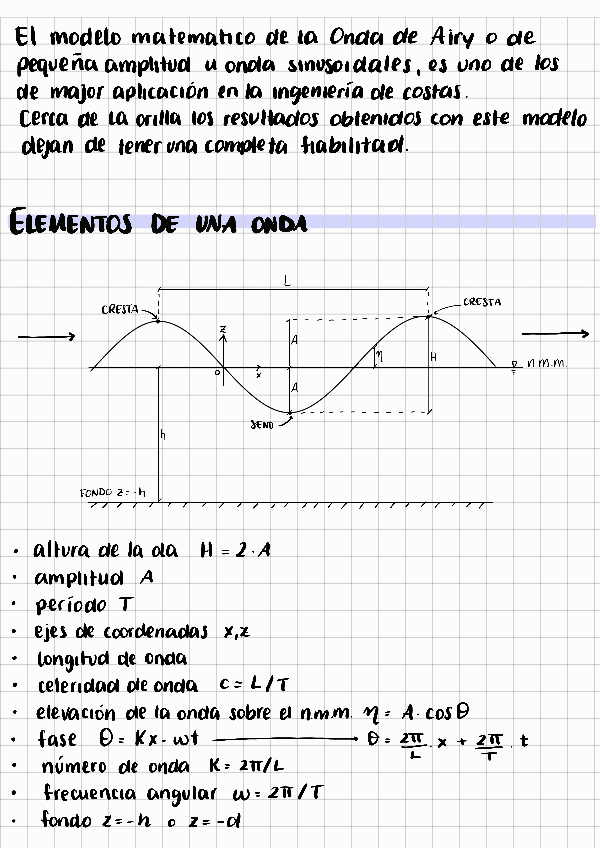 El modelo matematico de la Onda de Airy o de
pequeña amplitud u onda sinusoidales, es uno de los
de major aplicación en la ingeniería de costas.
Cerca de la orilla los resultados obtenidos con este modelo
dejan de tener una completa fiabilitad.
ELEMENTOS DE UNA ONDA
L
CRESTA
CRESTA
z
A
η
H
n m.m.
o
x
A
SENO
h
FONDO z = -h
• altura de la ola H = 2·A
• amplitud A
• período T
• ejes de coordenadas x,z
• longitud de onda
• celeridad de onda c = L/T
• elevación de la onda sobre el n m.m. η = A·cosθ
• fase θ = Kx - ωt ⟶ θ = 2π/L · x + 2π/T · t
• número de onda K = 2π/L
• frecuencia angular ω = 2π/T
• fondo z = -h o z = -d